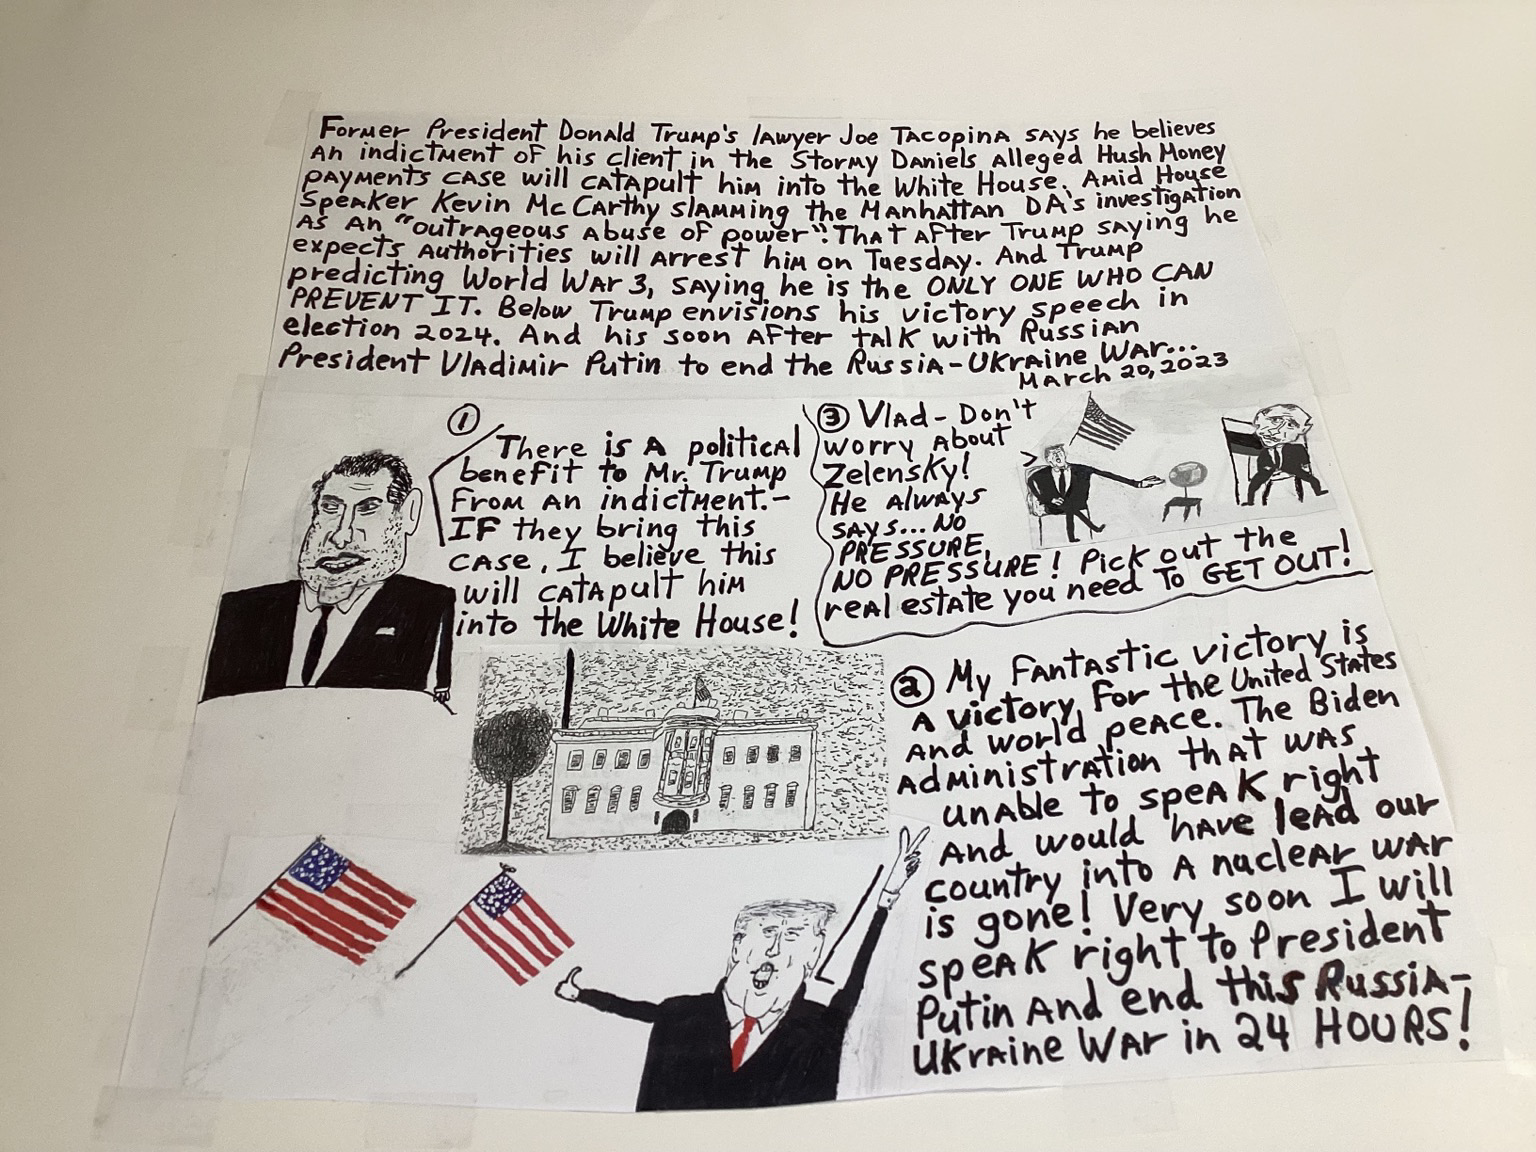 Former President Donald Trump's lawyer Joe Tacopina says he believes
an indictment of his client in the Stormy Daniels alleged Hush Money
payments case will catapult him into the White House. Amid House
Speaker Kevin McCarthy slamming the Manhattan DA's investigation
as an "outrageous abuse of power". That after Trump saying he
expects authorities will arrest him on Tuesday. And Trump
predicting World War 3, saying he is the ONLY ONE WHO CAN
PREVENT IT. Below Trump envisions his victory speech in
election 2024. And his soon after talk with Russian
President Vladimir Putin to end the Russia-Ukraine War...
March 20, 2023
1
There is a political
benefit to Mr. Trump
from an indictment.-
IF they bring this
case, I believe this
will catapult him
into the White House!
2 My fantastic victory is
a victory for the United States
and world peace. The Biden
administration that was
unable to speak right
and would have lead our
country into a nuclear war
is gone! Very soon I will
speak right to President
Putin and end this Russia-
Ukraine War in 24 HOURS!
3 Vlad - Don't
worry about
Zelensky!
He always
says... NO
PRESSURE,
NO PRESSURE! Pick out the
real estate you need to GET OUT!